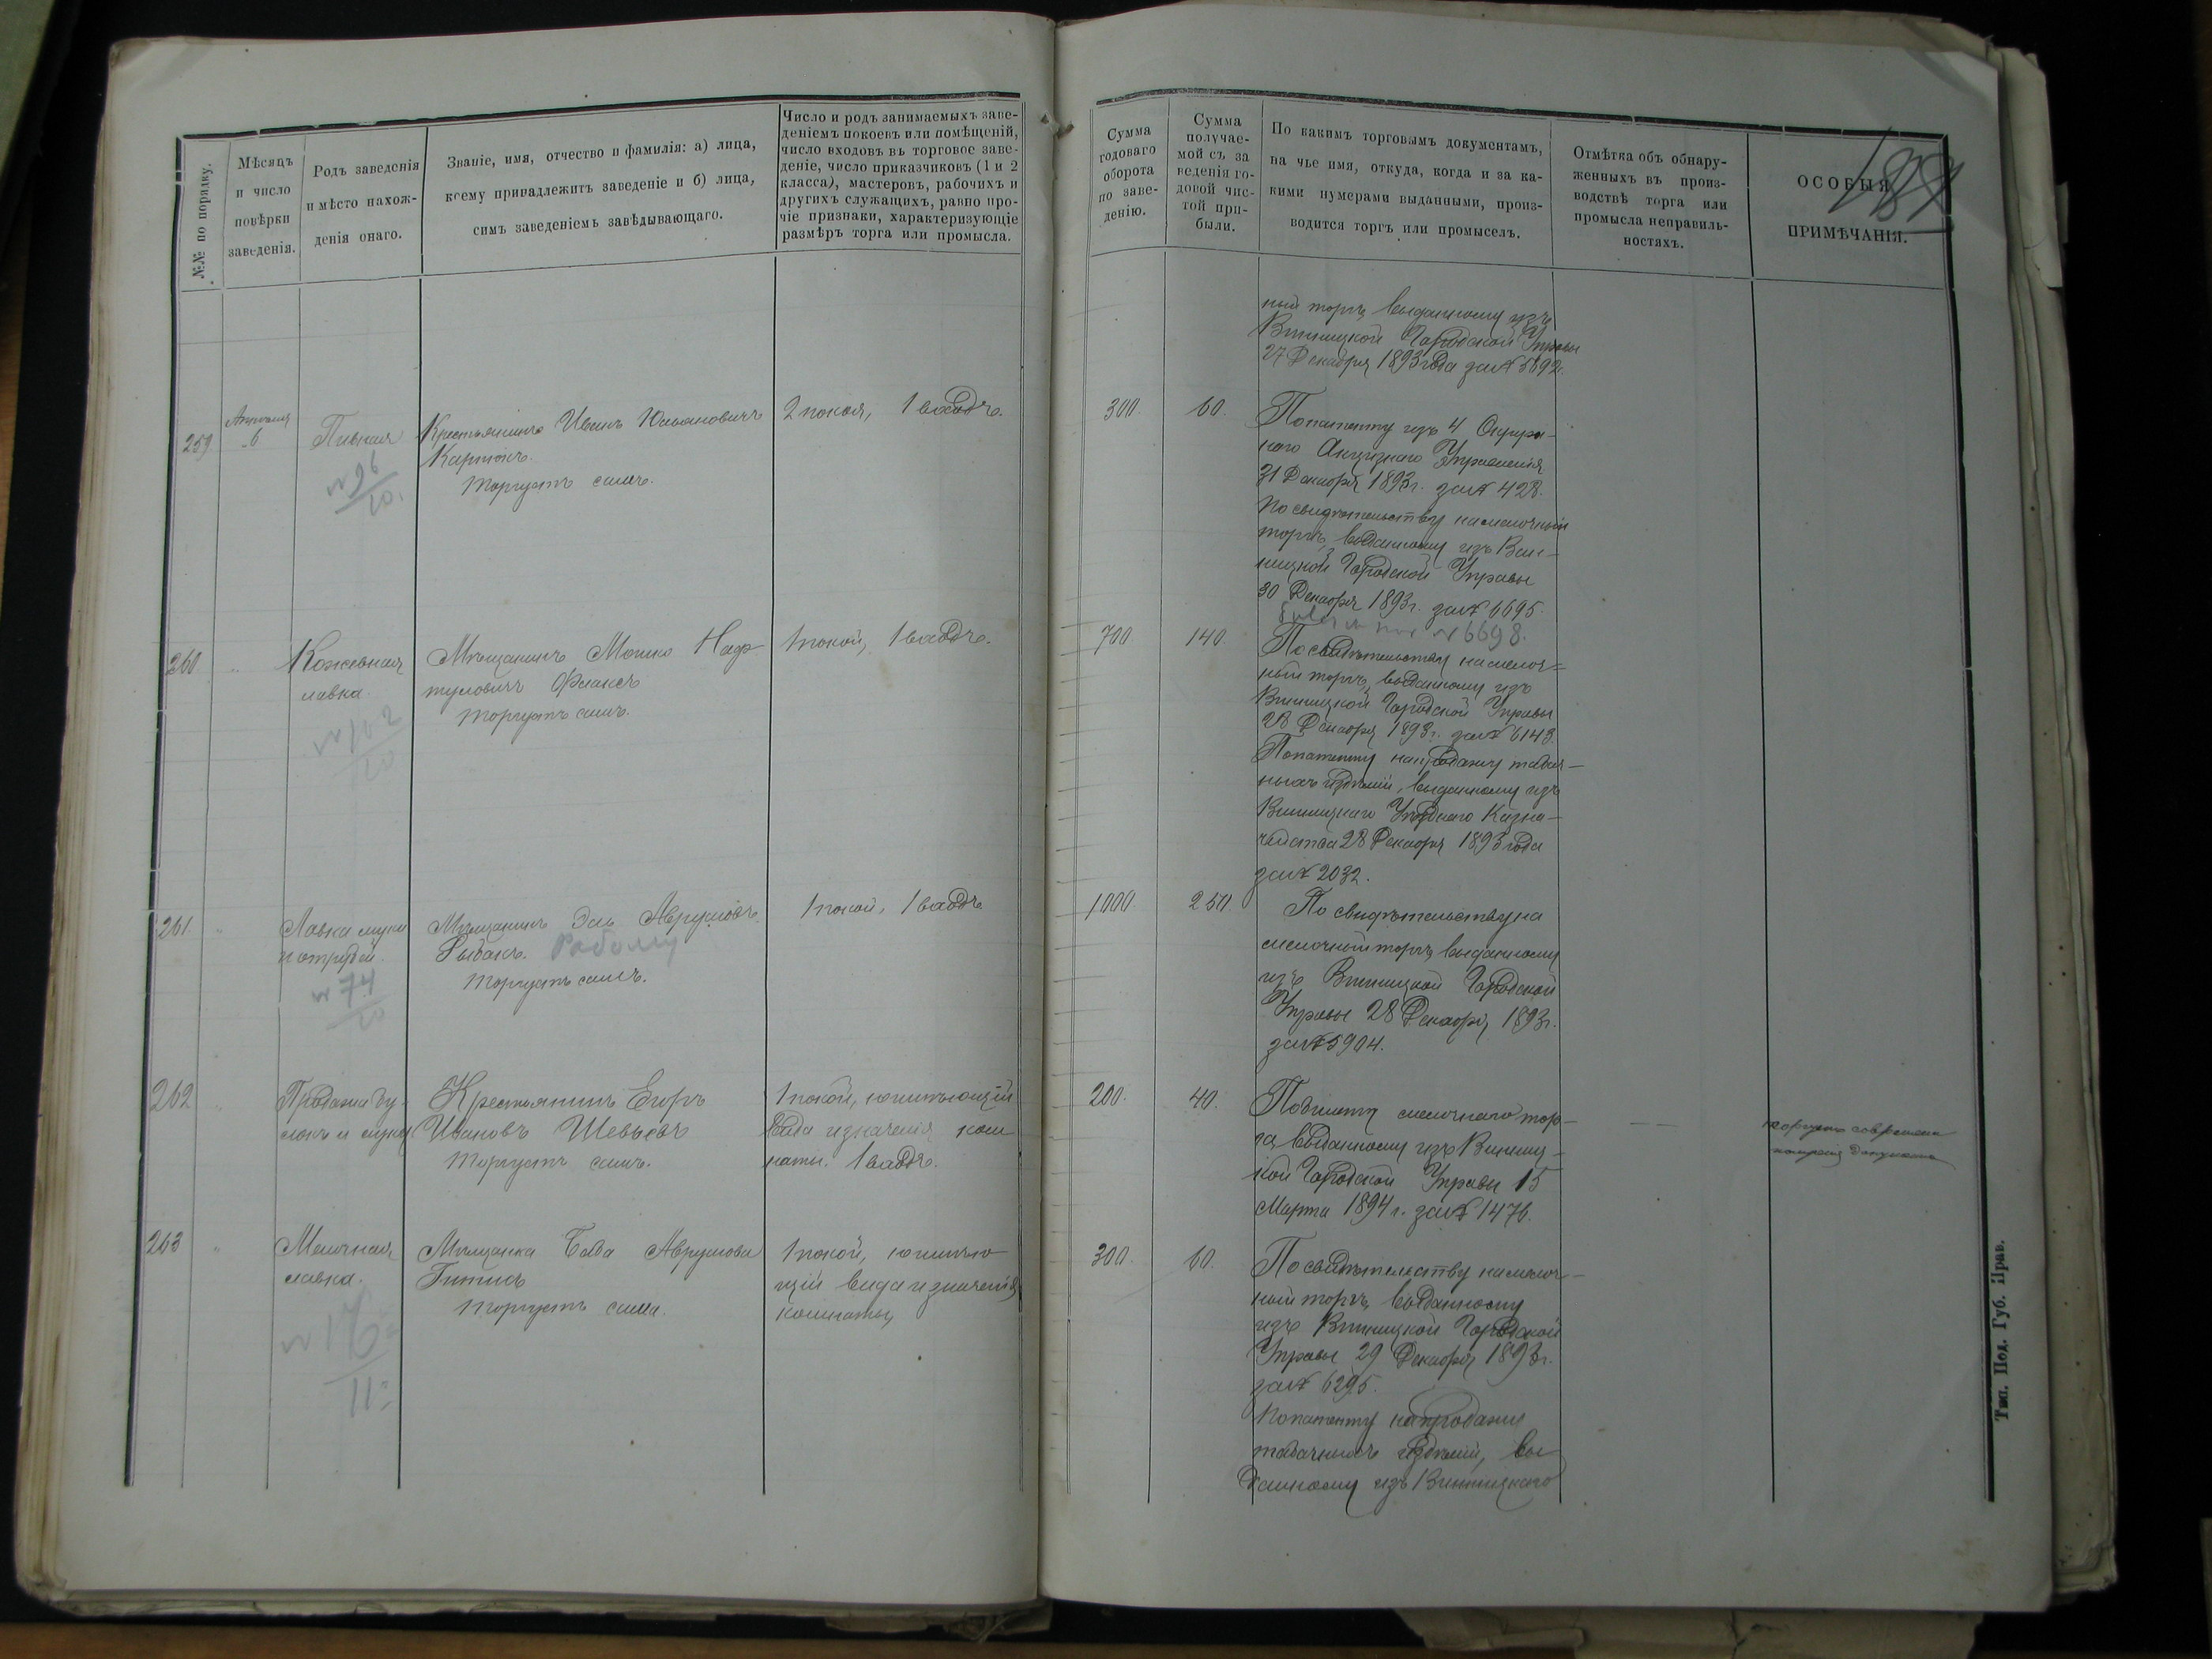 №№ по порядку.
Мѣсяцъ
и число
повѣрки
заведенія.
Родъ заведенія
и мѣсто нахож-
денія онаго.
Званіе, имя, отчество и фамилія: а) лица,
коему принадлежитъ заведеніе и б) лица,
симъ заведеніемъ завѣдывающаго.
Число и родъ занимаемыхъ заве-
деніемъ покоевъ или помѣщеній,
число входовъ въ торговое заве-
деніе, число приказчиковъ (1 и 2
класса), мастеровъ, рабочихъ и
другихъ служащихъ, равно про-
чіе признаки, характеризующіе
размѣръ торга или промысла.
259
Апрѣля
6
Пивная
№ 96
10.
Крестьянинъ Иванъ Юльяновичъ
Карпюкъ.
Торгуетъ самъ.
2 покоя, 1 входъ.
260
Кожевная
лавка.
№ 102
10
Мѣщанинъ Мошко Наф-
туловичъ Флаксъ
Торгуетъ самъ.
1 покой, 1 входъ.
261.
Лавка муки
и отрубей.
№ 74
10
Мѣщанинъ Эль Аврумовъ
Рыбакъ.
Торгуетъ самъ.
1 покой, 1 входъ
262
Продажа бу-
локъ и муки
Крестьянинъ Егоръ
Ивановъ Шевьевъ
Торгуетъ самъ.
1 покой, неимѣющій
вида и значенія ком
наты. 1 входъ.
263
Мелочная
лавка.
11
Мѣщанка Баба Аврумова
Гитисъ
Торгуетъ сама.
1 покой, неимѣю
щій вида и значенія
комнаты
Сумма
годоваго
оборота
по заве-
денію.
Сумма
получае-
мой съ за
веденія го-
довой чис-
той при-
были.
По какимъ торговымъ документамъ,
на чье имя, откуда, когда и за ка-
кими нумерами выданными, произ-
водится торгъ или промыселъ.
Отмѣтка объ обнару-
женныхъ въ произ-
водствѣ торга или
промысла неправиль-
ностяхъ.
ОСОБЫЯ
ПРИМѢЧАНІЯ.
ный торгъ выданному изъ
Винницкой Городской Управы
27 Декабря 1893 года за № 5692.
300. 60.
По патенту изъ 4 Окруж-
наго Акцизнаго Управленія
31 Декабря 1893 г. за № 428.
По свидѣтельству на мелочный
торгъ, выданному изъ Вин-
ницкой Городской Управы
30 Декабря 1893 г. за № 6695.
№ 6698.
700 140.
По свидѣтельству на мелоч-
ный торгъ, выданному изъ
Винницкой Городской Управы
28 Декабря 1893 г. за № 6143.
По патенту на продажу табач-
ныхъ издѣлій, выданному изъ
Винницкаго Уѣзднаго Казна-
чейства 28 Декабря 1893 года
за № 2032.
1000. 250.
По свидѣтельству на
мелочный торгъ выданному
изъ Винницкой Городской
Управы 28 Декабря 1893 г.
за № 5904.
200. 40.
По билету мелочнаго тор-
га, выданному изъ Винниц-
кой Городской Управы 15
Марта 1894 г. за № 1476.
300. 60.
По свидѣтельству на мелоч-
ный торгъ, выданному
изъ Винницкой Городской
Управы 29 Декабря 1893 г.
за № 6295.
По патенту на продажу
табачныхъ издѣлій, вы-
данному изъ Винницкаго
Тип. Под. Губ. Прав.